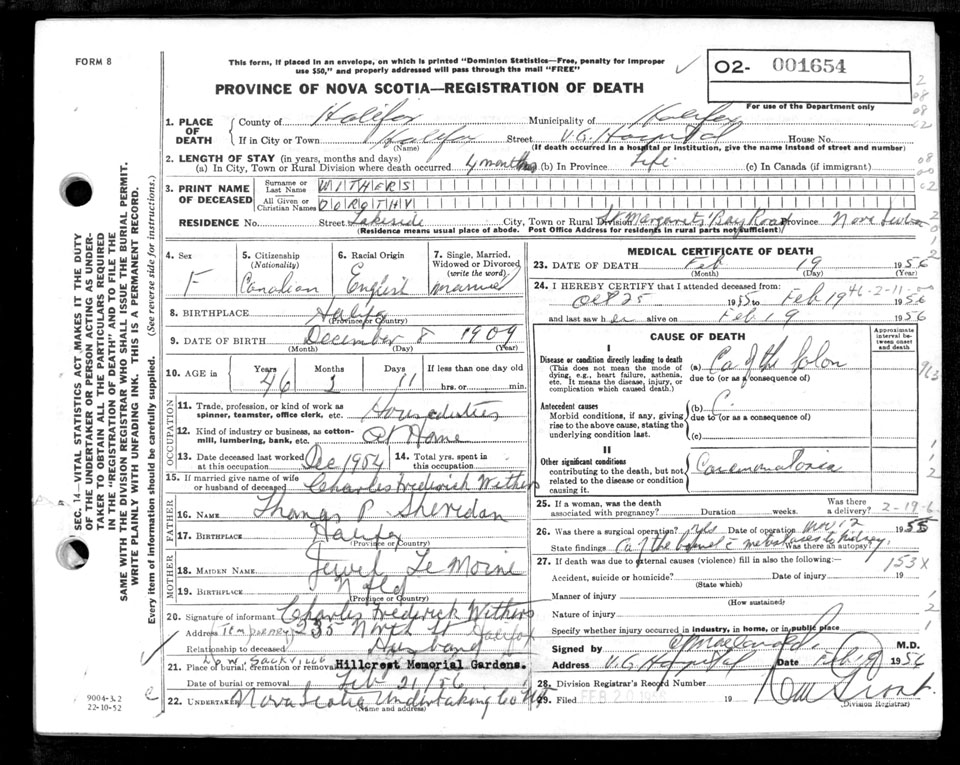 FORM 8
This form, if placed in an envelope, on which is printed "Dominion Statistics—Free, penalty for improper
use $50," and properly addressed will pass through the mail "FREE"
PROVINCE OF NOVA SCOTIA—REGISTRATION OF DEATH
O2- 001654
For use of the Department only
1. PLACE OF DEATH
County of Halifax Municipality of Halifax
If in City or Town Halifax Street V.G. Hospital House No.
(Name) (If death occurred in a hospital or institution, give the name instead of street and number)
2. LENGTH OF STAY (in years, months and days)
(a) In City, Town or Rural Division where death occurred 4 months (b) In Province Life (c) In Canada (if immigrant)
3. PRINT NAME OF DECEASED
Surname or Last Name WITHERS
All Given or Christian Names DOROTHY
RESIDENCE No. Street Lakeside City, Town or Rural Division St Margarets Bay Road Province Nova Scotia
(Residence means usual place of abode. Post Office Address for residents in rural parts not sufficient)
4. Sex F
5. Citizenship (Nationality) Canadian
6. Racial Origin English
7. Single, Married, Widowed or Divorced (write the word) married
8. BIRTHPLACE Halifax
(Province or Country)
9. DATE OF BIRTH December 8 1909
(Month) (Day) (Year)
10. AGE in Years 46 Months 2 Days 11 If less than one day old
hrs. or min.
OCCUPATION
11. Trade, profession, or kind of work as spinner, teamster, office clerk, etc. House duties
12. Kind of industry or business, as cotton-mill, lumbering, bank, etc. At Home
13. Date deceased last worked at this occupation Dec 1954 14. Total yrs. spent in this occupation
15. If married give name of wife or husband of deceased Charles Frederick Withers
FATHER
16. NAME Thomas P. Sheridan
17. BIRTHPLACE Halifax
(Province or Country)
MOTHER
18. MAIDEN NAME Jewel Le Moine
19. BIRTHPLACE Nfld
(Province or Country)
20. Signature of informant Charles Frederick Withers
Address TEMPORARY 235 North St Halifax
Relationship to deceased Husband
LOW. SACKVILLE
21. Place of burial, cremation or removal Hillcrest Memorial Gardens.
Date of burial or removal Feb 21/56
22. UNDERTAKER Nova Scotia Undertaking Co
(Name and address)
MEDICAL CERTIFICATE OF DEATH
23. DATE OF DEATH Feb 19 1956
(Month) (Day) (Year)
24. I HEREBY CERTIFY that I attended deceased from:
46-2-11
Oct 25 1955 to Feb 19 1956
and last saw her alive on Feb 19 1956
CAUSE OF DEATH
Approximate interval between onset and death
I
Disease or condition directly leading to death
(This does not mean the mode of dying, e.g., heart failure, asthenia, etc. It means the disease, injury, or complication which caused death.)
(a) Ca of the Colon
due to (or as a consequence of)
Antecedent causes
Morbid conditions, if any, giving rise to the above cause, stating the underlying condition last.
(b)
due to (or as a consequence of)
(c)
II
Other significant conditions
contributing to the death, but not related to the disease or condition causing it.
25. If a woman, was the death associated with pregnancy? Duration weeks. Was there a delivery?
2-19-6
26. Was there a surgical operation? Date of operation Nov 12 1955
State findings Ca of the bowel c metastases to kidney Was there an autopsy?
27. If death was due to external causes (violence) fill in also the following:
153X
Accident, suicide or homicide? Date of injury 19
(State which)
Manner of injury
(How sustained)
Nature of injury
Specify whether injury occurred in industry, in home, or in public place
Signed by M.D.
Address V.G. Hospital Date Feb 19 1956
28. Division Registrar's Record Number
29. Filed FEB 20 1956 19
(Division Registrar)
SEC. 14—VITAL STATISTICS ACT MAKES IT THE DUTY
OF THE UNDERTAKER OR PERSON ACTING AS UNDER-
TAKER TO OBTAIN ALL THE PARTICULARS REQUIRED
IN THE "REGISTRATION OF DEATH" AND TO FILE THE
SAME WITH THE DIVISION REGISTRAR WHO SHALL ISSUE THE BURIAL PERMIT.
WRITE PLAINLY WITH UNFADING INK. THIS IS A PERMANENT RECORD.
Every item of information should be carefully supplied. (See reverse side for instructions.)
9004-3.2
22-10-52